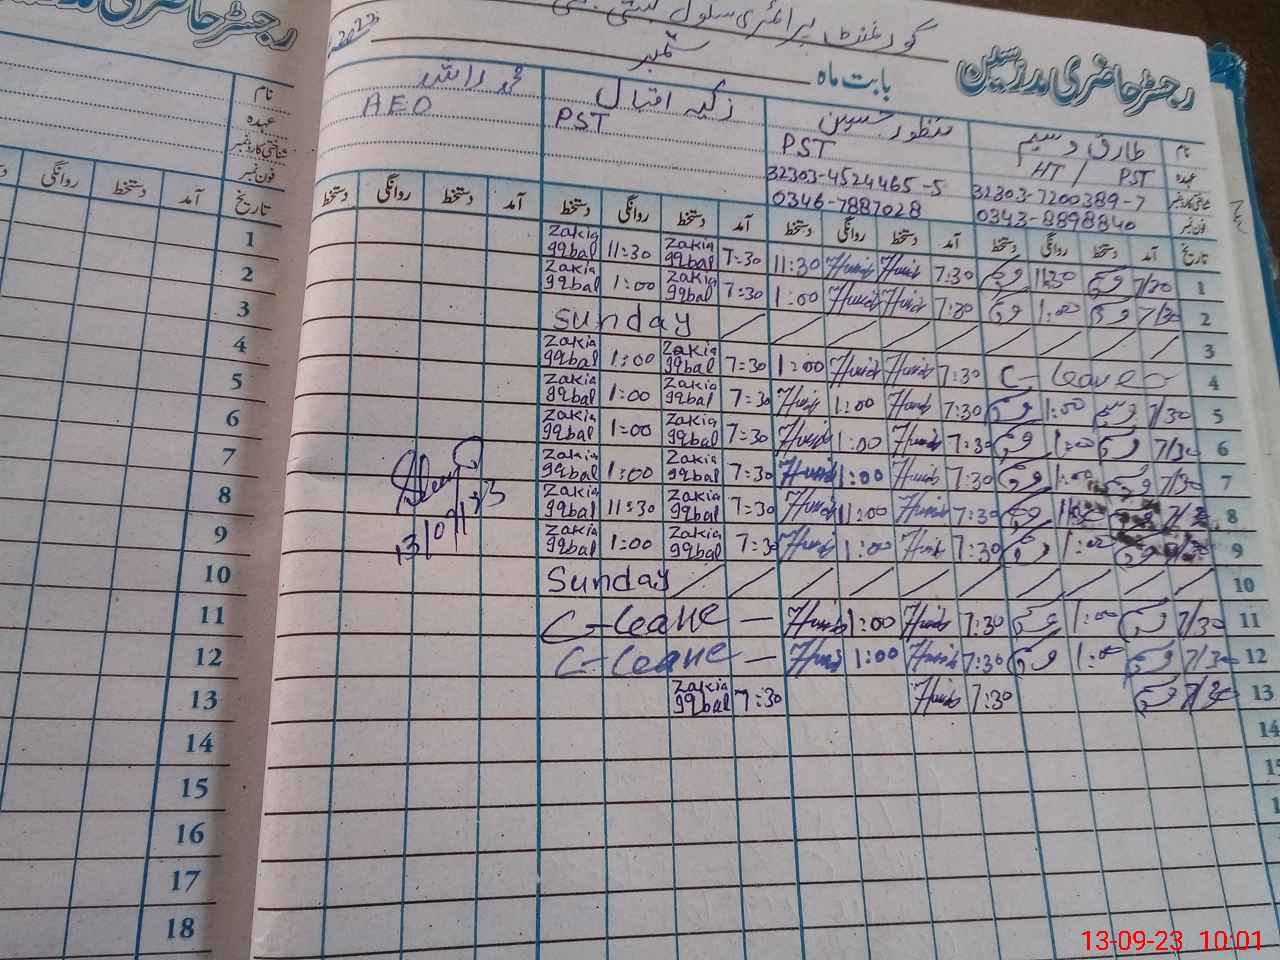 رجسٹر حاضری مدرسین
گورنمنٹ پرائمری سکول
بابت ماہ ستمبر 2023
نام طارق وسیم منظور حسین زکیہ اقبال
عہدہ HT / PST PST PST AEO
شناختی کارڈ نمبر 32303-7200389-7 32303-4524465-5
فون نمبر 0343-8898840 0346-7887028
تاریخ آمد دستخط روانگی دستخط آمد دستخط روانگی دستخط آمد دستخط روانگی دستخط آمد دستخط روانگی دستخط
1 7/30 11:30 7:30 11:30 7:30 Zakia Iqbal 11:30 Zakia Iqbal
2 7/30 1:00 7:30 1:00 7:30 Zakia Iqbal 1:00 Zakia Iqbal
3 Sunday
4 C-leave 7:30 1:00 7:30 Zakia Iqbal 1:00 Zakia Iqbal
5 7/30 1:00 7:30 1:00 7:30 Zakia Iqbal 1:00 Zakia Iqbal
6 7/30 1:00 7:30 1:00 7:30 Zakia Iqbal 1:00 Zakia Iqbal
7 7/30 1:00 7:30 1:00 7:30 Zakia Iqbal 1:00 Zakia Iqbal
8 7:30 7:30 Zakia Iqbal 11:30 Zakia Iqbal
9 7/30 1:00 7:30 1:00 7:30 Zakia Iqbal 1:00 Zakia Iqbal
10 Sunday
11 7/30 1:00 7:30 1:00 C-leave
12 7/30 1:00 7:30 1:00 C-leave
13 7/30 7:30 7:30 Zakia Iqbal
14
رجسٹر حاضری
نام
عہدہ
شناختی کارڈ نمبر
فون نمبر
تاریخ آمد دستخط روانگی
1
2
3
4
5
6
7
8
9
10
11
12
13
14
15
16
17
18
13-09-23 10:01